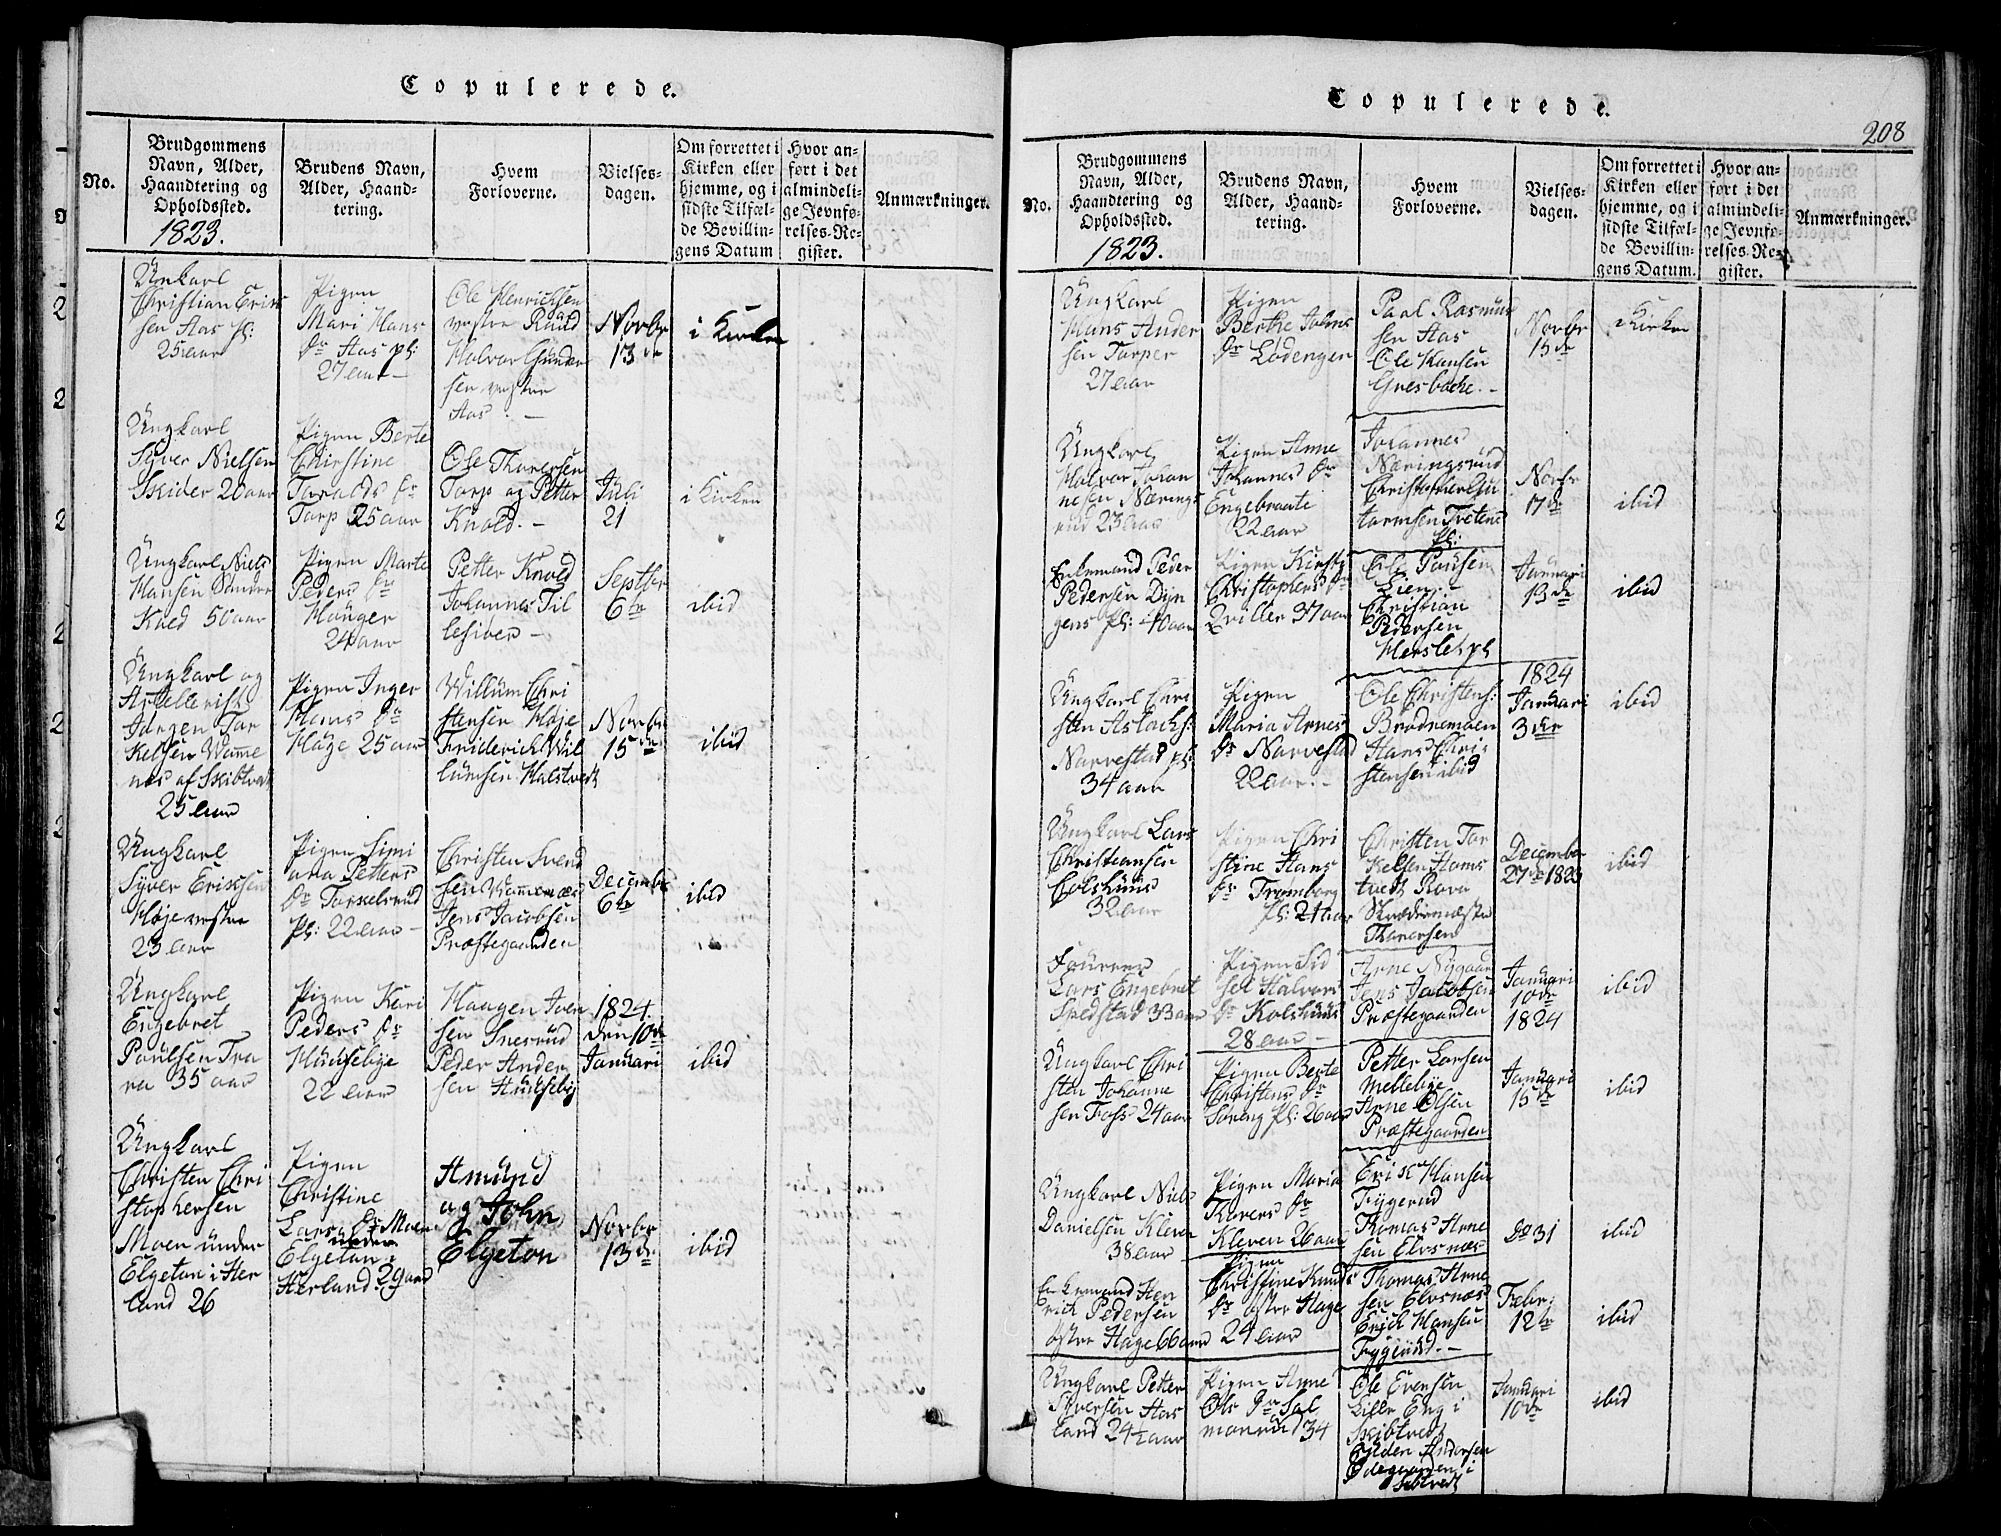 Copulerede.
No.
Brudgommens
Navn, Alder,
Haandtering og
Opholdssted.
1823.
Brudens Navn,
Alder, Haand-
tering.
Hvem
Forloverne.
Vielses-
dagen.
Om forrettet i
Kirken eller
hjemme, og i
sidste Tilfæl-
de Bevillin-
gens Datum
Hvor an-
ført i det
almindeli-
ge Jevnfø-
relses-Re-
gister.
Anmærkninger.
Ungkarl
Christian Erik
sen Aas pl:
25 aar
Pigen
Mari Hans
dr Aas pl:
27 aar
Ole Henrichsen
vestre Raud
Halvor Gunder
sen vestre
Aas. -
Novbr
13de
i Kirken
Ungkarl
Syver Nielsen
Skider 20 aar
Pigen Berte
Christine
Taralds dr
Tarp 25 aar
Ole Thoresen
Tarp og Petter
Knold. -
Juli
21
i Kirken
Ungkarl Niels
Hansen Søndre
Kned 50 aar
Pigen Marte
Peders dr
Hauger
24 aar
Petter Knold
Johannes Til
lesiver -
Septbr
6te
ibid
Ungkarl og
Artellerist
Jørgen Tor
kelsen Wamme
nes af Skibtvedt
25 aar
Pigen Inger
Hans dr
Høge 25 aar
Willum Chri
stensen Høje
Friderich Wil
lumsen Halstvedt
Novbr
15de
ibid
Ungkarl
Syver Ericksen
Høje vestre
23 aar
Pigen Simi
ana Petters
dr Torkelsrud
pl: 22 aar -
Christen Svend
sen Wammenæs
Jens Jacobsen
Præstegaarden
Decembr
6te
ibid
Ungkarl
Engebret
Paulsen Tra
ra 35 aar
Pigen Kari
Peders dr
Hauselye
22 aar
Haagen Iver
sen Snesrud
Peder Ander
sen
1824.
den 10de
Januari
ibid
Ungkarl
Christen Chri
stophersen
Moen under
Elgeton i Her
land 26
Pigen
Christine
Lars dr Moen
under
Elgetan i
Herland 29 aar
Amund
og John
Elgeton
Novbr
13de
ibid
Copulerede.
208
No.
Brudgommens
Navn, Alder,
Haandtering og
Opholdssted.
1823.
Brudens Navn,
Alder, Haand-
tering.
Hvem
Forloverne.
Vielses-
dagen.
Om forrettet i
Kirken eller
hjemme, og i
sidste Tilfæl-
de Bevillin-
gens Datum.
Hvor an-
ført i det
almindeli-
ge Jevnfø-
relses-Re-
gister.
Anmærkninger.
Ungkarl
Hans Ander
sen Torper
27 aar
Pigen
Berthe Johns
dr Lødengen
Paul Rasmus
sen Aas
Ole Hansen
Gnesbache. -
Novbr
15de
Kirken
Ungkarl
Halvor Johan
nesen Nærings
rud 23 aar
Pigen Anne
Johannes dr
Engebraate
22 aar
Johannes
Næringsrud
Christopher Gut
tormsen Tveten
pl:
Novbr
17de
ibid
Enkemand Peder
Pedersen Dyn
gens pl: 40 aar
Pigen Kirsti
Christophers dr
Qviller 37 aar
Ole Poulsen
Lien -
Christian
Pedersen
Hersleth pl
Januari
13de
ibid
Ungkarl Chri
sten Aslachs:
Narvestad pl:
34 aar
Pigen
Maria Arnes
dr Narvestad
22 aar. -
Ole Christens:
Brødremoen
Hans Chri
stensen ibid
1824
Januari
3die
ibid
Ungkarl Lars
Christiansen
Colshuus
32 aar
Pigen Chri
stine Hans
dr Tromborg
pl: 21 aar
Christen Tor
kelsen Hams
tvedt Rova
Skræddermæster
Thoresen
December
27de 1823
ibid
Lars Engebret
Spedstad 33 aar
Pigen Sid
sel Halvors
dr Kolshuus
28 aar -
Arne Nygaard
Jens Jacobsen
Præstegaarden
Januari
10de
1824
ibid
Ungkarl Chri
sten Johanne
sen Foss 24 aar
Pigen Berte
Christens dr
Søreng pl: 26 aar
Petter Larsen
Mellebye
Arne Olsen
Præstegaarden
Januari
15de
ibid
Ungkarl Niels
Danielsen Kleven
38 aar
Pigen Maria
Thores dr
Kleven 26 aar
Erich Hansen
Fygerud
Thomas Arne
sen Elvsnæs
do 31
ibid
Enkemand Hen
rich Pedersen
østre Hage 66 aar
Pigen
Christine Knuds
dr østre Hage
24 aar
Thomas Arne
sen Elvsnæs
Erich Hansen
Fygerud. -
Febr:
12te
ibid
Ungkarl Petter
Syversen Aas
land 24½ aar
Pigen Anne
Ols dr Sal
monrud 34
Ole Evensen
Lille Eng i
Skibtvedt
Andersen
Ødegaarden i
Skibtvedt
Januari
10de
ibid